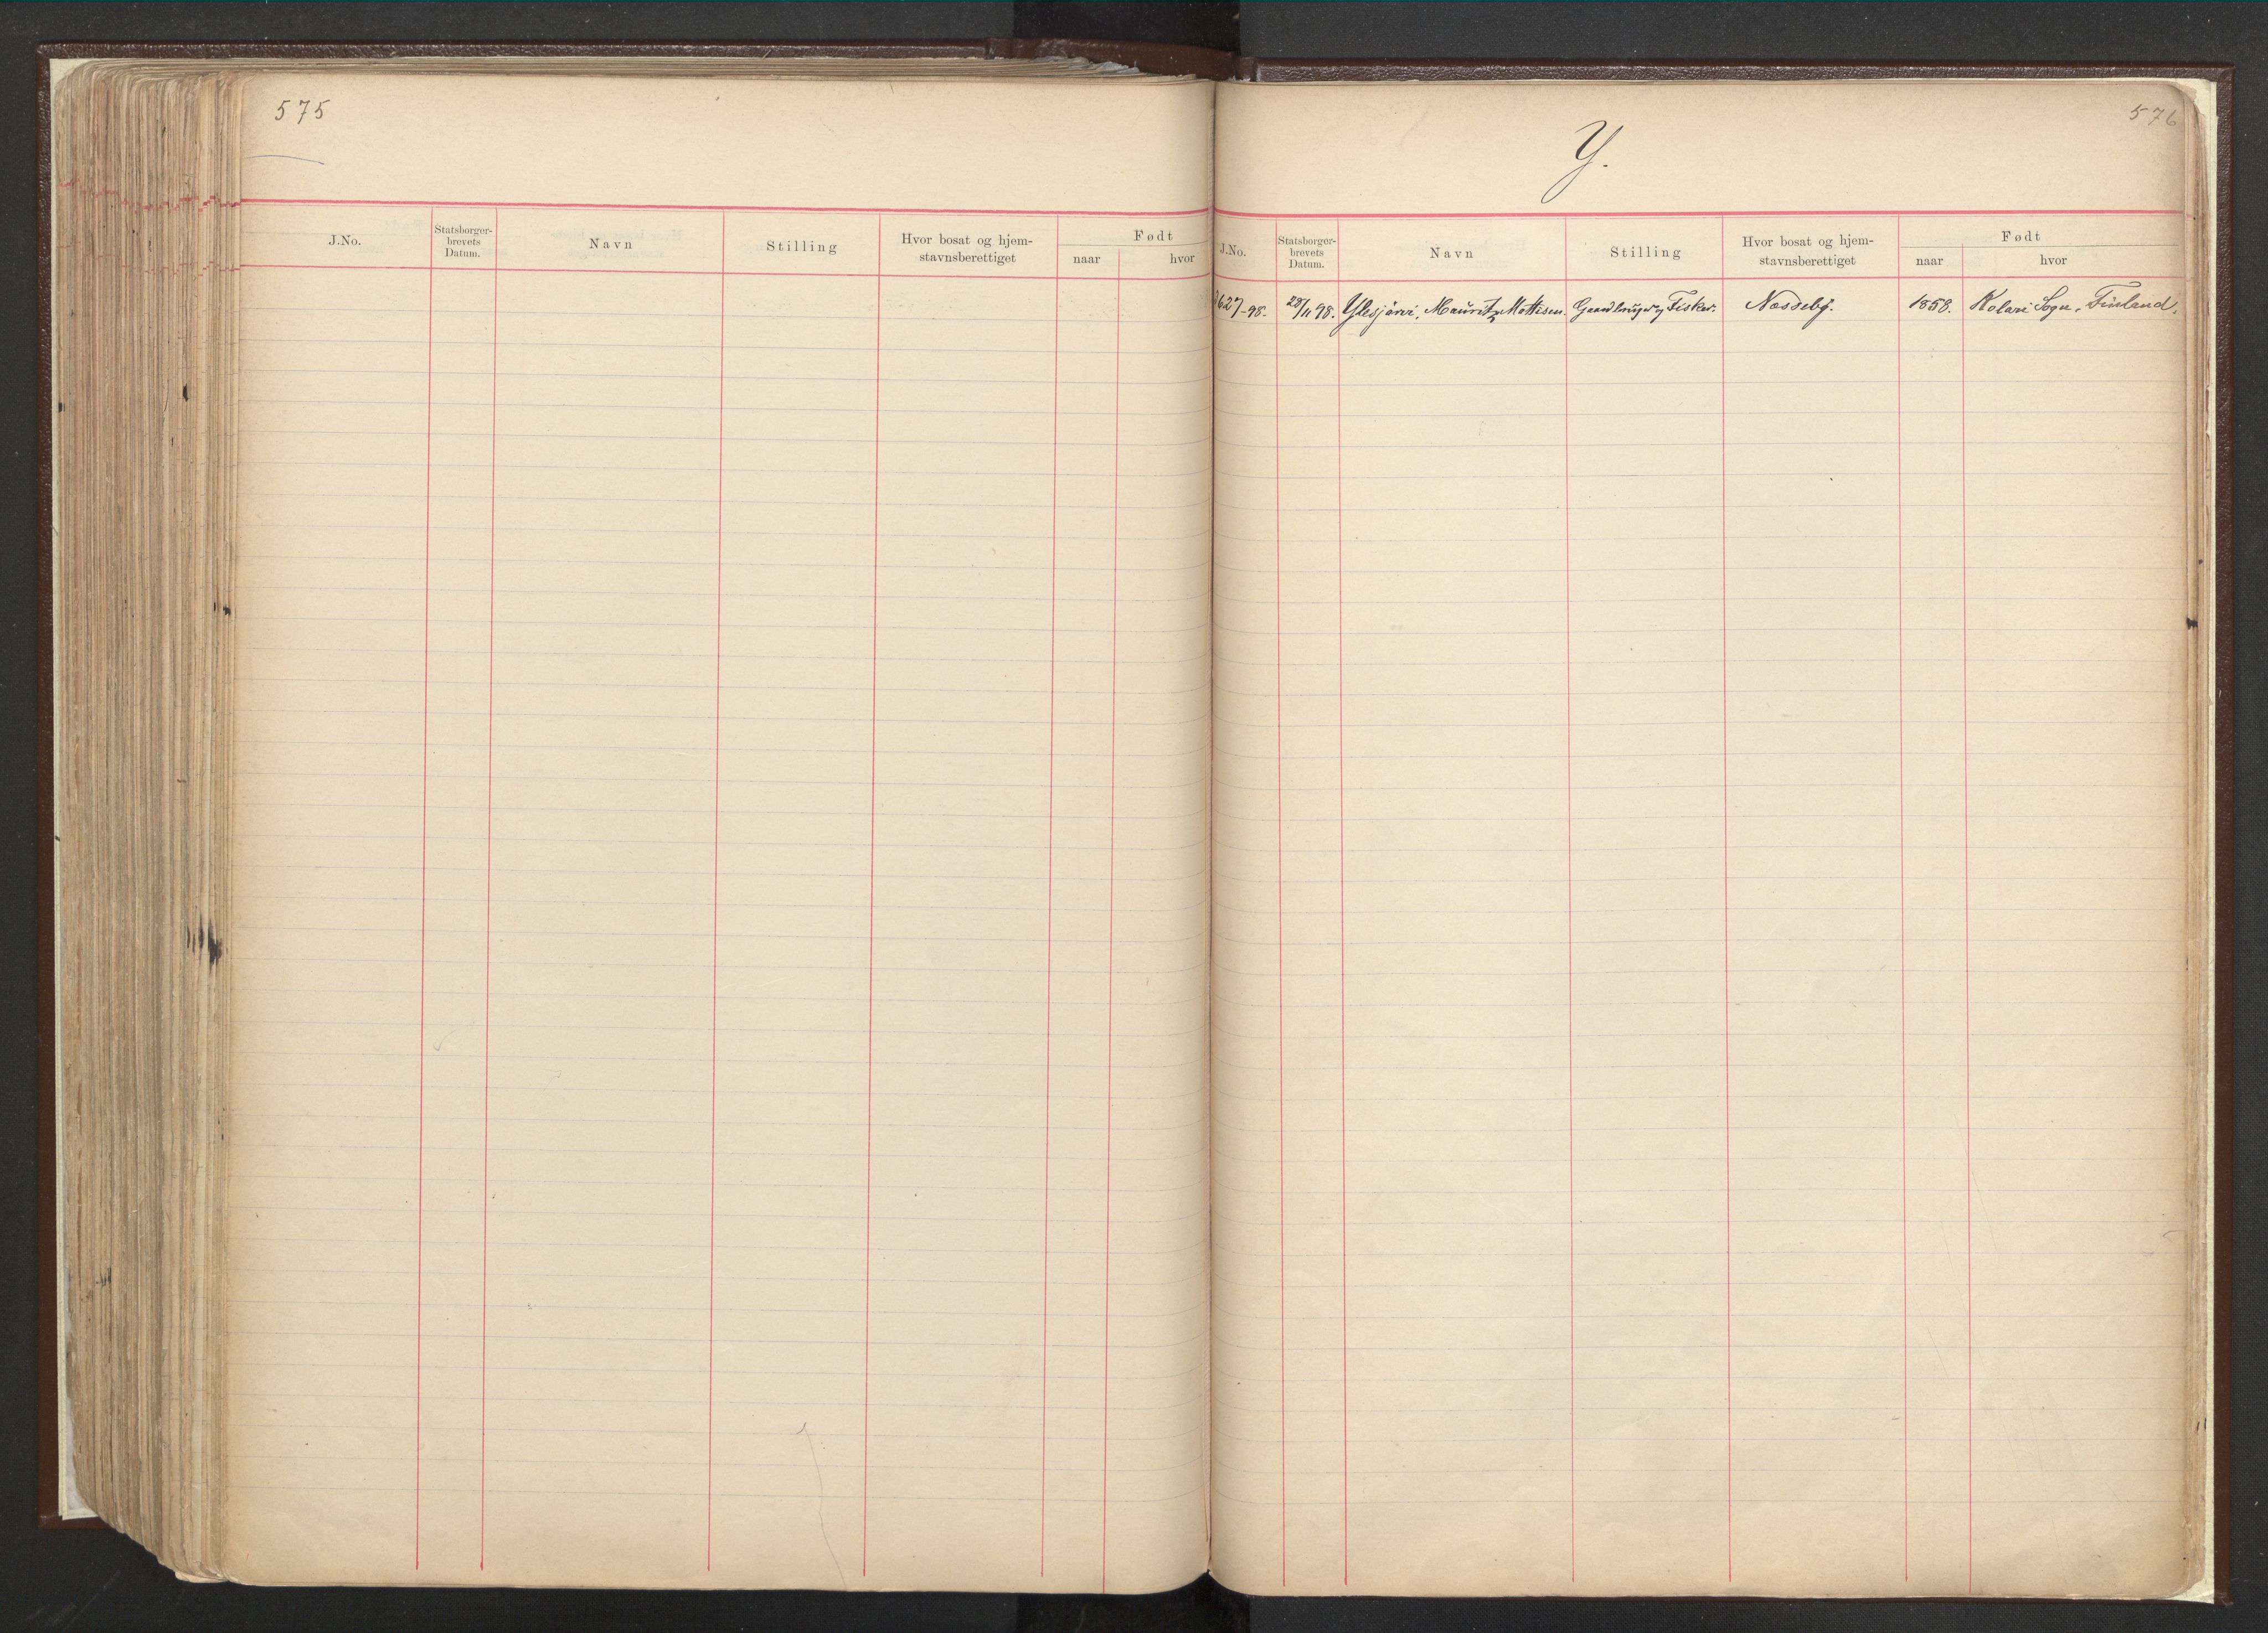 575
J.No.
Statsborger-
brevets
Datum.
Navn
Stilling
Hvor bosat og hjem-
stavnsberettiget
Født
naar
hvor
576
Y.
J.No.
Statsborger-
brevets
Datum.
Navn
Stilling
Hvor bosat og hjem-
stavnsberettiget
Født
naar
hvor
627-98. 28/11 98. Ylesjärvi, Mauritz Mattisen. Gaardbruger og Fisker. Næsseby. 1858. Kolari Sogn, Finland.